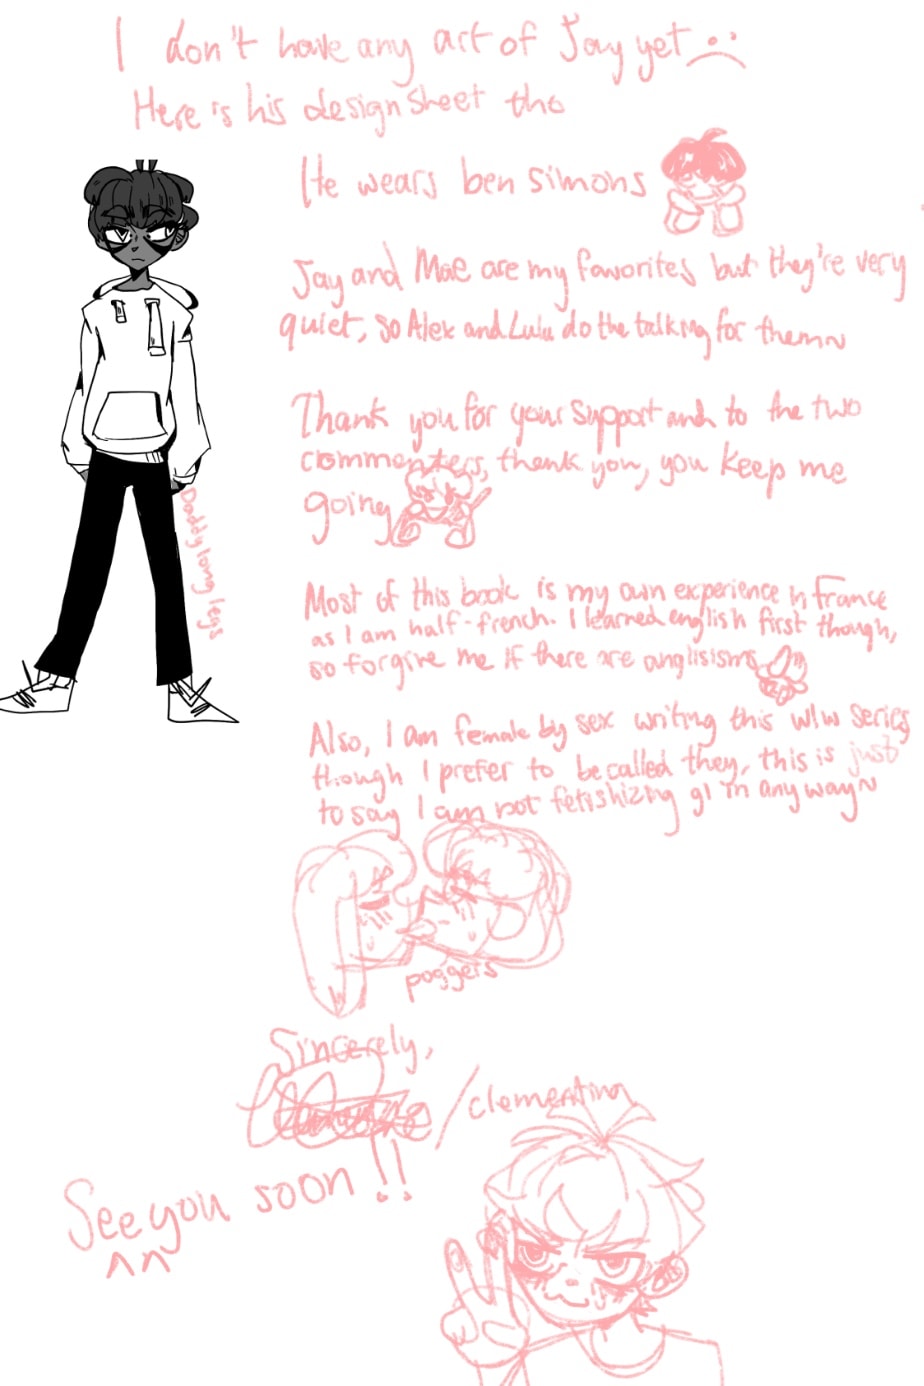 I don't have any art of Jay yet
Here is his design sheet tho
He wears ben simons
Jay and Mae are my favorites but they're very
quiet, so Alex and Lulu do the talking for them~
Thank you for your support and to the two
commenters, thank you, you keep me
going
Daddy long legs
Most of this book is my own experience in France
as I am half-french. I learned english first though,
so forgive me if there are anglisisms
Also, I am female by sex writing this wlw series
though I prefer to be called they, this is just
to say I am not fetishizing gl in any way~
poggers
Sincerely,
/clementino
See you soon!!
^^